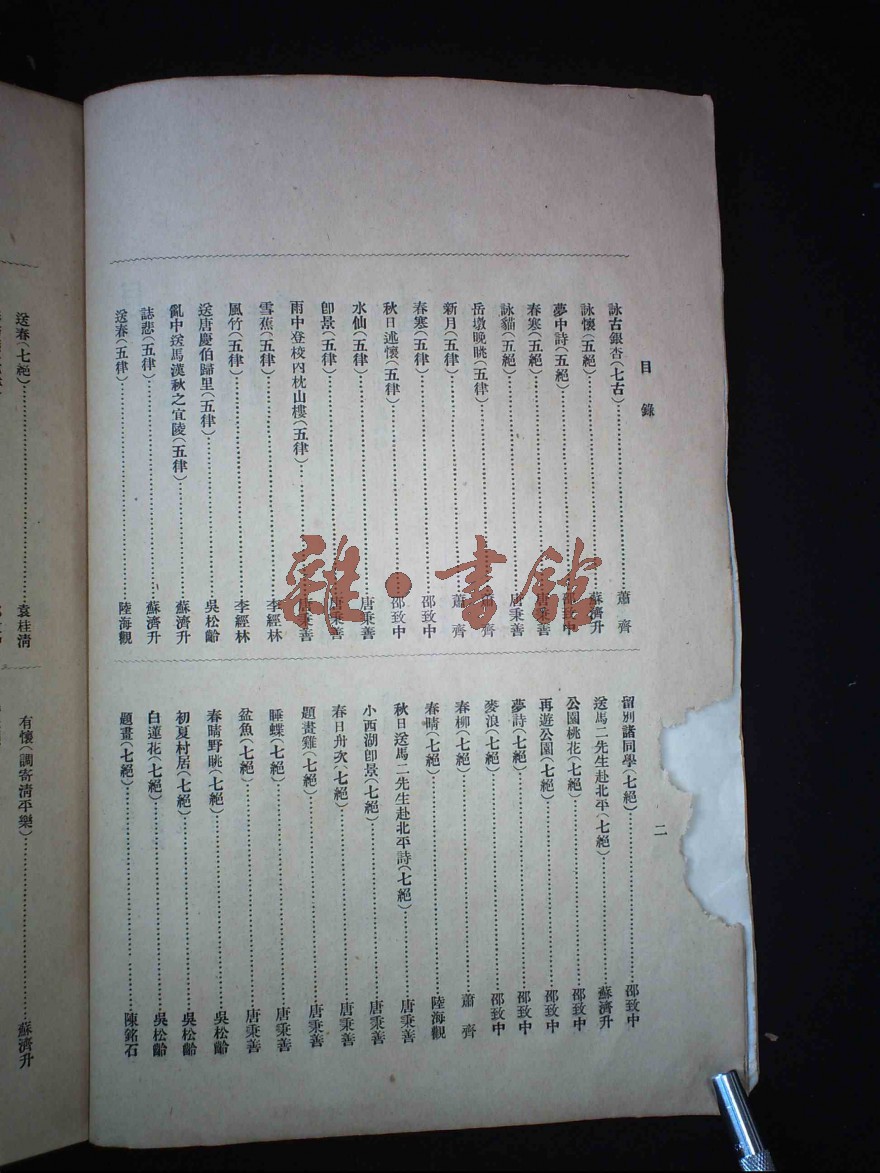 目錄
詠古銀杏(七古)……蕭齊
詠懷(五絕)……蘇濟升
夢中詩(五絕)……邵致中
春寒(五絕)……唐秉善
詠貓(五絕)……唐秉善
岳墩晚眺(五律)……蕭齊
新月(五律)……蕭齊
春寒(五律)……邵致中
秋日述懷(五律)……邵致中
水仙(五律)……唐秉善
卽景(五律)……唐秉善
雨中登校內枕山樓(五律)……唐秉善
雪蕉(五律)……李經林
風竹(五律)……李經林
送唐慶伯歸里(五律)……吳松齡
亂中送馬漢秋之宜陵(五律)……蘇濟升
誌悲(五律)……蘇濟升
送春(五律)……陸海觀
留別諸同學(七絕)……邵致中
送馬二先生赴北平(七絕)……蘇濟升
公園桃花(七絕)……邵致中
再遊公園(七絕)……邵致中
夢詩(七絕)……邵致中
麥浪(七絕)……邵致中
春柳(七絕)……蕭齊
春晴(七絕)……陸海觀
秋日送馬二先生赴北平詩(七絕)……唐秉善
小西湖卽景(七絕)……唐秉善
春日舟次(七絕)……唐秉善
題畫雞(七絕)……唐秉善
睡蝶(七絕)……唐秉善
盆魚(七絕)……唐秉善
春晴野眺(七絕)……吳松齡
初夏村居(七絕)……吳松齡
白蓮花(七絕)……吳松齡
題畫(七絕)……陳銘石
二
送春(七絕)……袁桂清
有懷(調寄清平樂)……蘇濟升
雜·書館